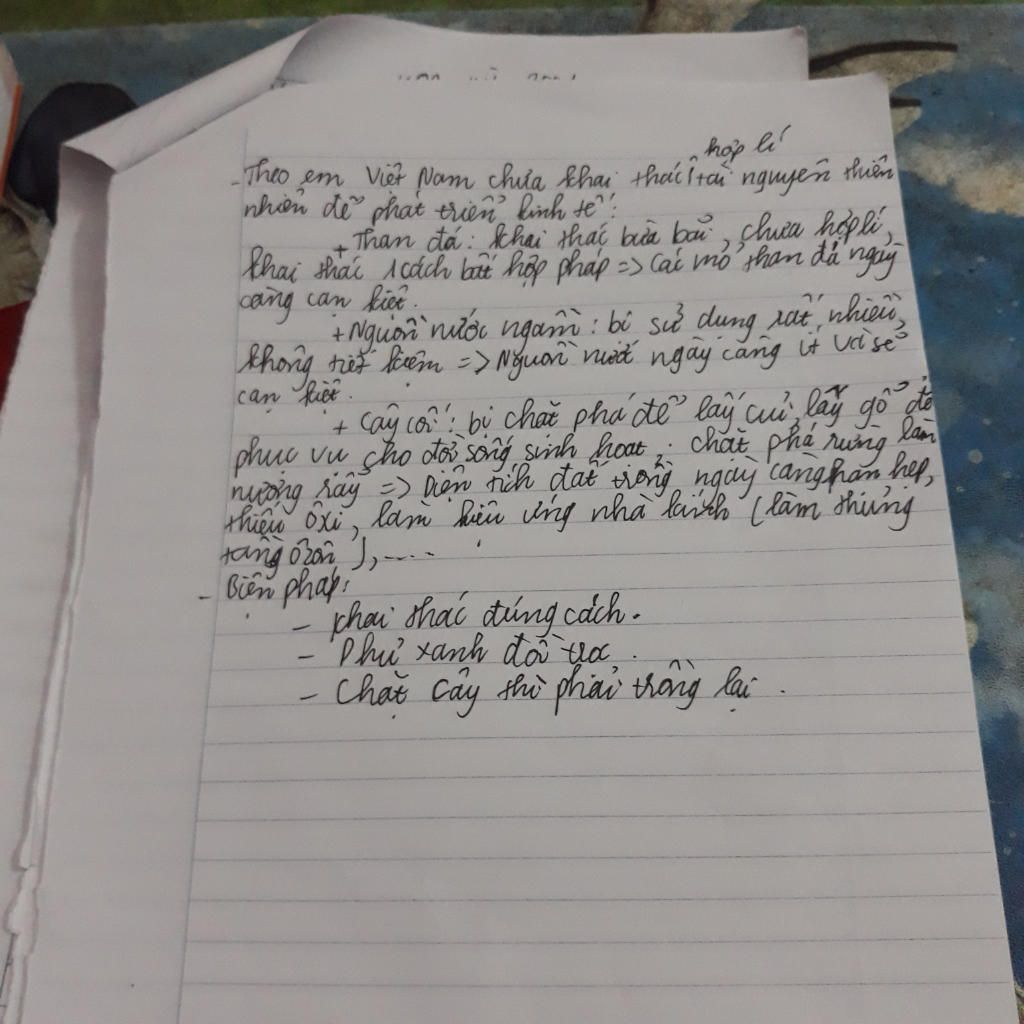 hợp lí
- Theo em Việt Nam chưa khai thác tài nguyên thiên
nhiên để phát triển kinh tế:
+ Than đá: khai thác bừa bãi, chưa hợp lí,
khai thác 1 cách bất hợp pháp => Các mỏ than đá ngày
càng cạn kiệt.
+ Nguồn nước ngầm: bị sử dụng rất nhiều,
không tiết kiệm => Nguồn nước ngày càng ít và sẽ
cạn kiệt.
+ Cây cối: bị chặt phá để lấy củi, lấy gỗ để
phục vụ cho đời sống sinh hoạt; chặt phá rừng làm
nương rẫy => Diện tích đất trồng ngày càng hẹp,
thiếu ôxi, làm hiệu ứng nhà kính (làm thủng
tầng ôzôn), .....
- Biện pháp:
- Khai thác đúng cách.
- Phủ xanh đồi trọc.
- Chặt cây thì phải trồng lại.